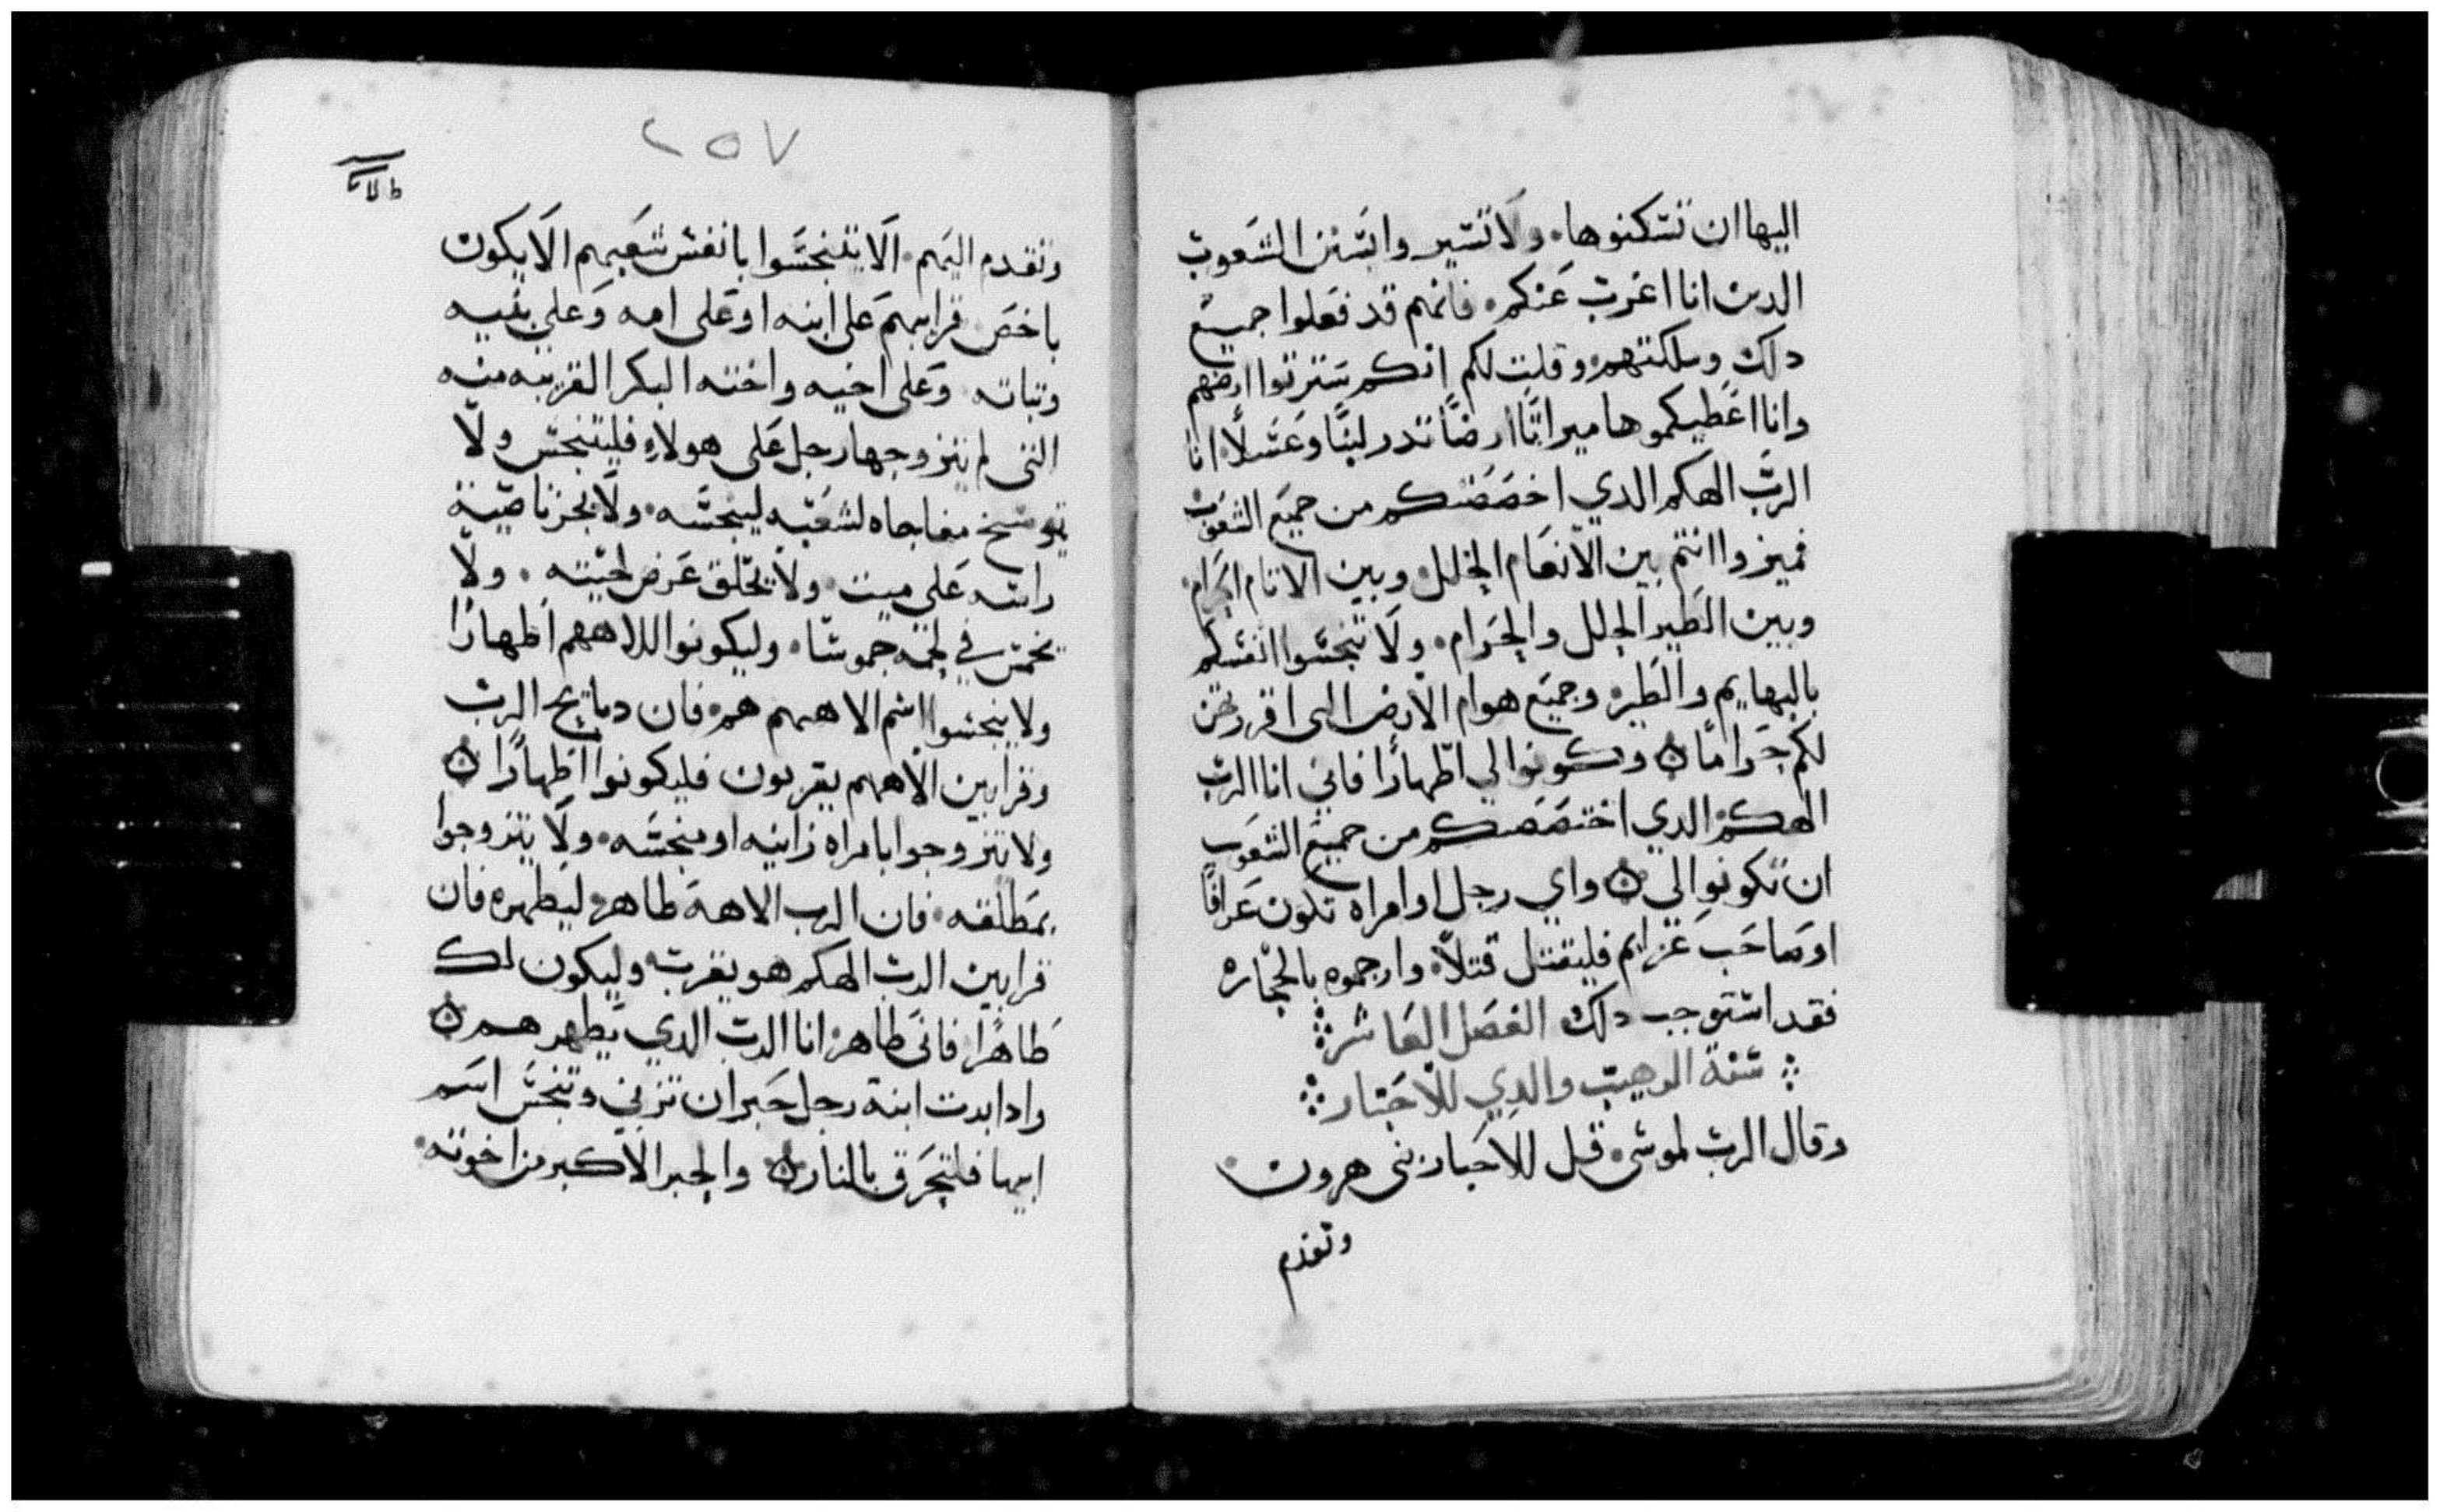 اليها ان تسكنوها. ولا تسير وابسنن الشعوب
الدين انا اغرب عنكم. فانهم قد فعلوا جميع
دلك وملكتهم وقلت لكم انكم سترتوا ارضهم
وانا اعطيكموها ميراتًا ارضًا تدر لبنًا وعسلًا. انا
الرب الهكم الدي اخصصتكم من جميع الشعوب
فميزوا انتم بين الانعام الحلل وبين الانام الحرام.
وبين الطير الحلل والحرام. ولا تنجسوا انفسكم
بالبهايم والطير وجميع هوام الارض التي افررتهن
لكم حرامًا ۞ وكونوا لي اطهارًا فاني انا الرب
الهكم الدي اختصصتكم من جميع الشعوب
ان تكونوا لي ۞ واي رجل او امراه تكون عرافًا
او صاحب عزايم فليقتل قتلًا. وارجموه بالحجاره
فقد استوجب دلك الفصل العاشر
سنة الوهيت والدي للاحبار
وقال الرب لموسى. قل للاحبار بنى هرون
وتقدم
٢٥٧
وتقدم اليهم. الا يتنجسوا بانفس شعبهم الا يكون
باخص قرابهم على ابنه او على امه وعلى بنيه
وبناته وعلى اخيه واخته البكر القريبه منه
التى لم يتزوجها رجل على هولاء فليتنجس ولا
يتوسخ مفاجاه لشعبه لينجسه. ولا يجز ناصية
راسه على ميت. ولا يحلق عرض لحيته. ولا
يخمش في لحمه خموشا. وليكونوا للاههم اطهارًا
ولا ينجسوا اسم الاههم هم فان دبايح الرب
وقرابين الاههم يقربون فليكونوا اطهارًا ۞
ولا يتزوجوا بامراه زانيه او منجسه. ولا يتزوجوا
بمطلقه. فان الرب الاهه طاهر ليطهره فان
قرابين الرب الهكم هو يقرب وليكون لك
طاهرًا. فانى طاهر انا الرب الدي يطهرهم ۞
وادا بدت ابنة رجل حبر ان تزني وتنجس اسم
ابيها فلتحرق بالنار ۞ والحبر الاكبر من اخوته